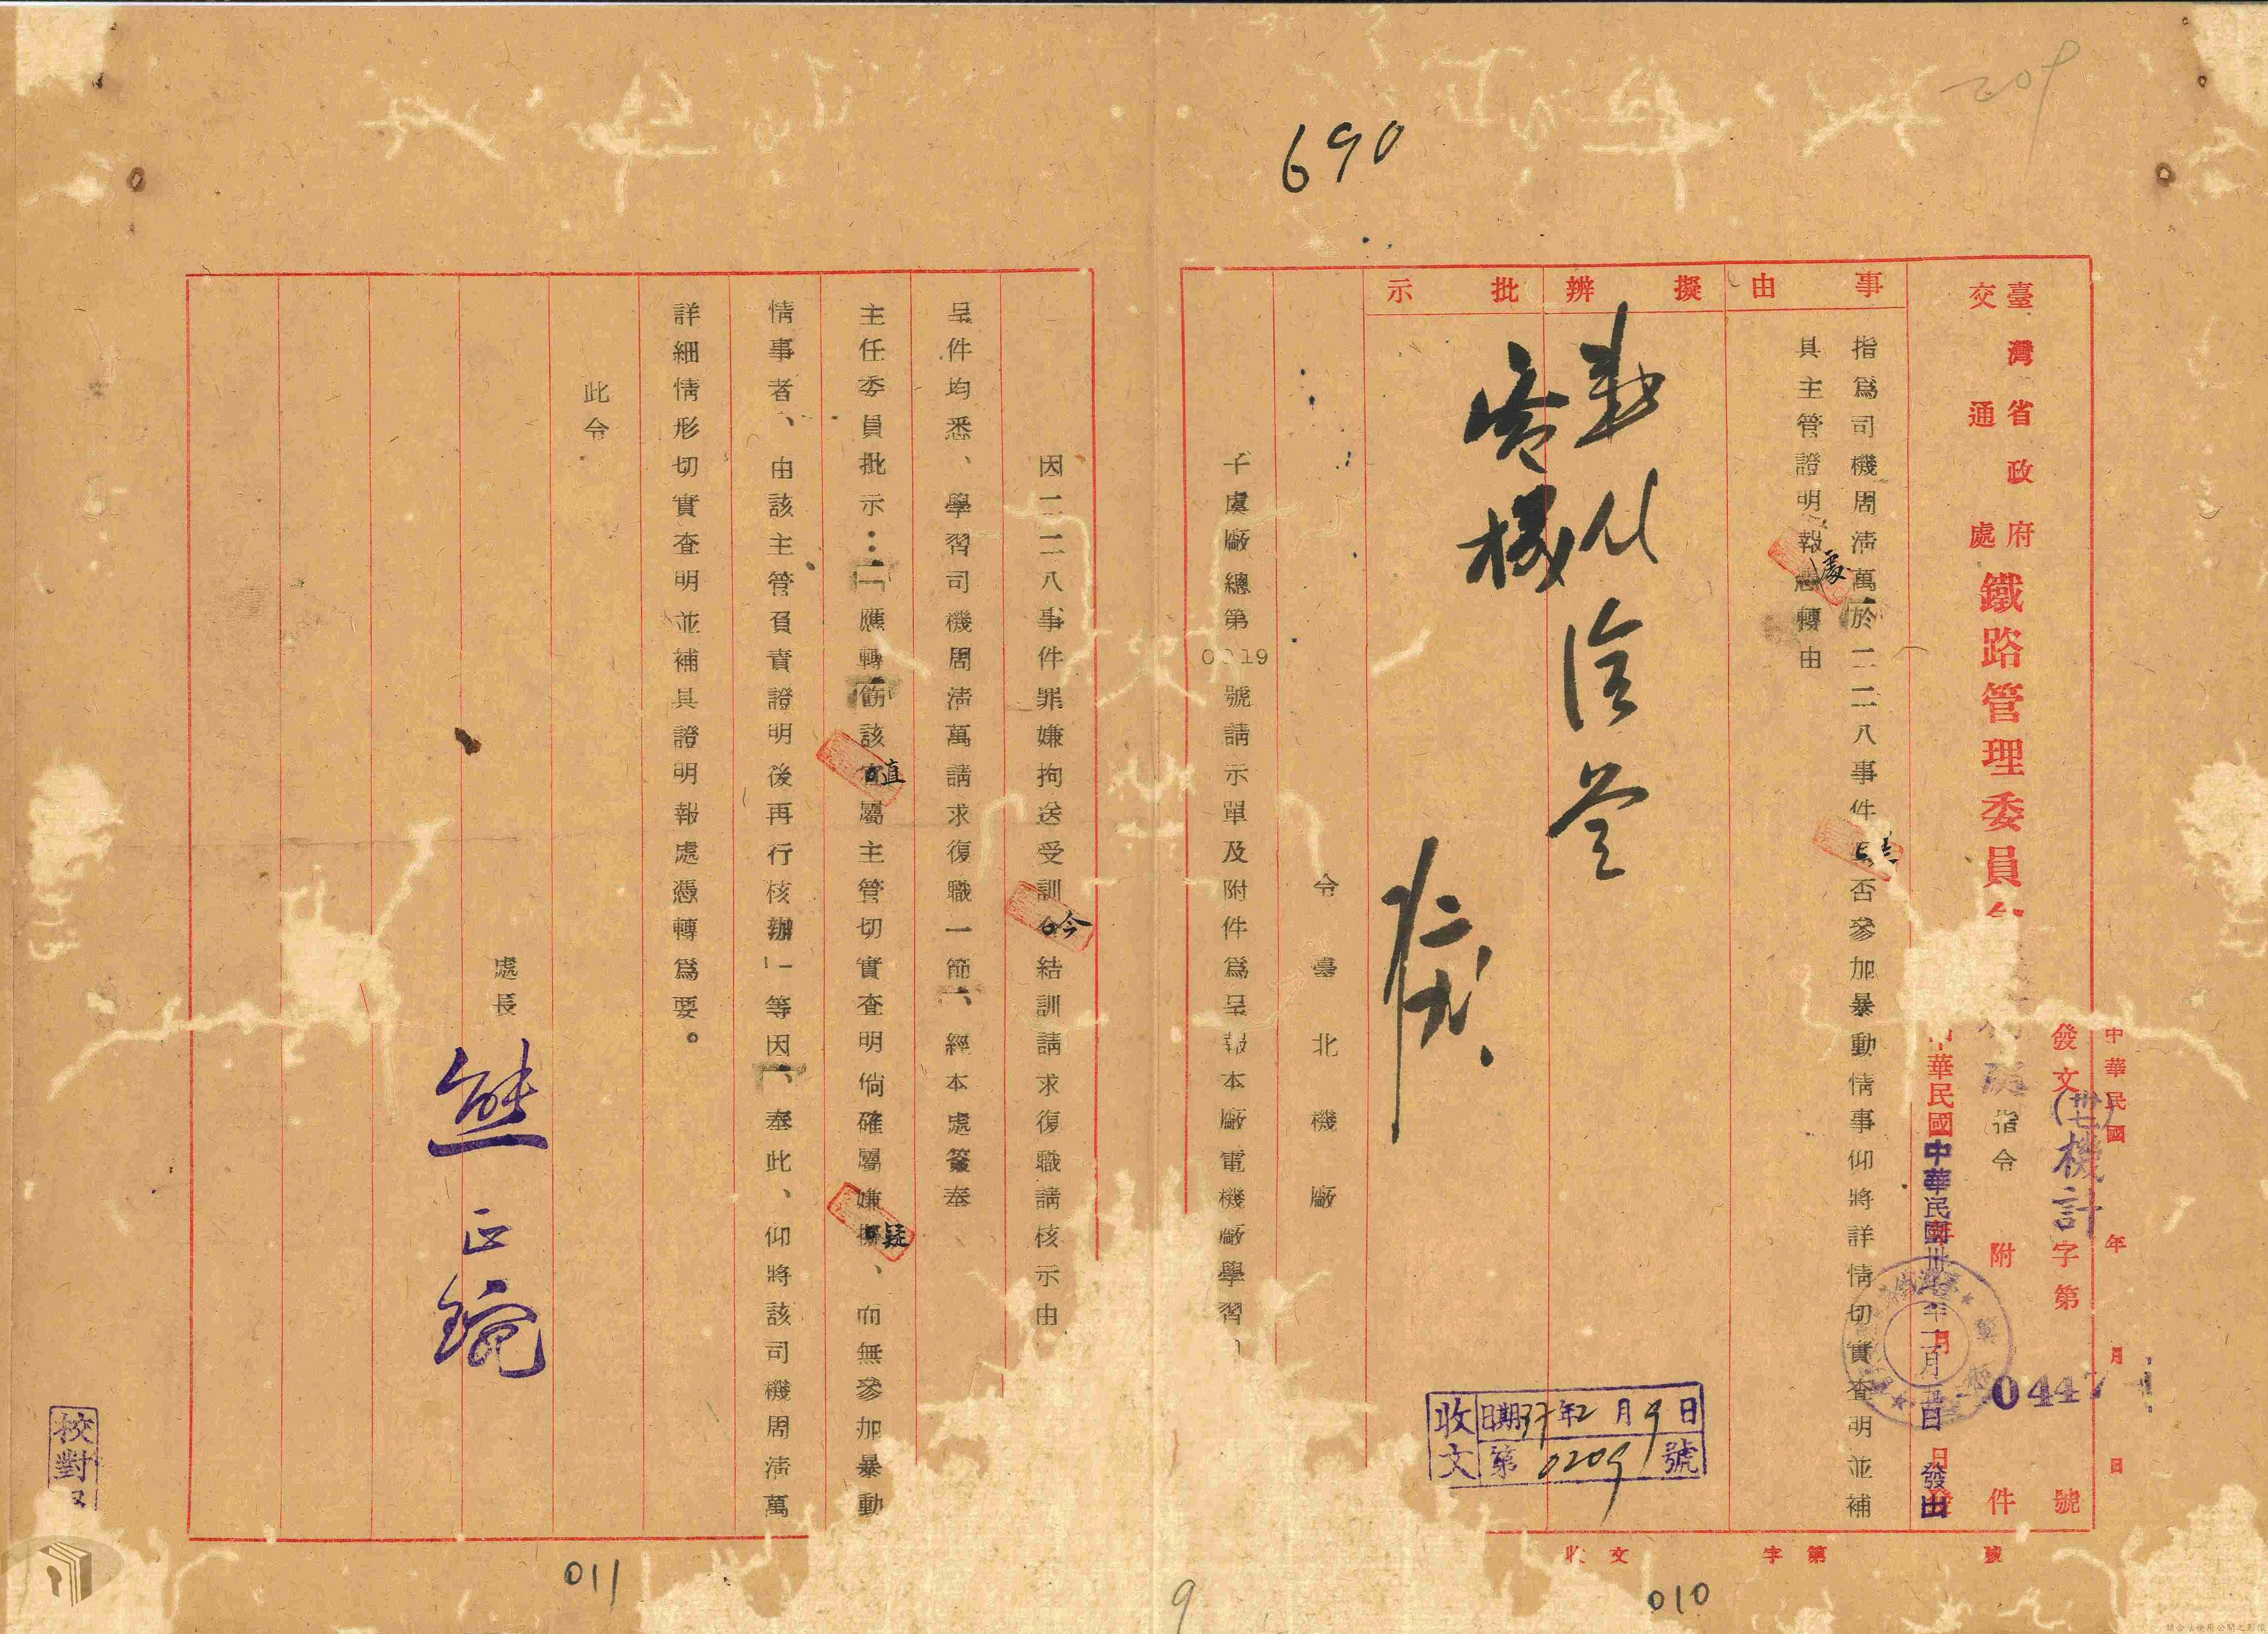 209
690
臺灣省政府
交通處
鐵路管理委員
中華民國 年 月 日
發文(卅七)機計字第 0447 號
指令 附 件
中華民國卅七年一月 日發出
事由
擬辦
批示
指為司機周清萬於二二八事件是否參加暴動情事仰將詳情切實查明並補
具主管證明報處憑轉由
令臺北機廠
子虞廠總第0019號請示單及附件為呈報本廠電機廠學習
因二二八事件罪嫌拘送受訓今結訓請求復職請核示由
呈件均悉、學習司機周清萬請求復職一節、經本處簽奉
主任委員批示：「應轉飭該直屬主管切實查明倘確屬嫌疑、而無參加暴動
情事者、由該主管負責證明後再行核辦」等因、奉此、仰將該司機周清萬
詳細情形切實查明並補具證明報處憑轉為要。
此令
處長 熊正琬
收文 日期37年2月9日
第0209號
校對
收文 字第 號
011
9
010